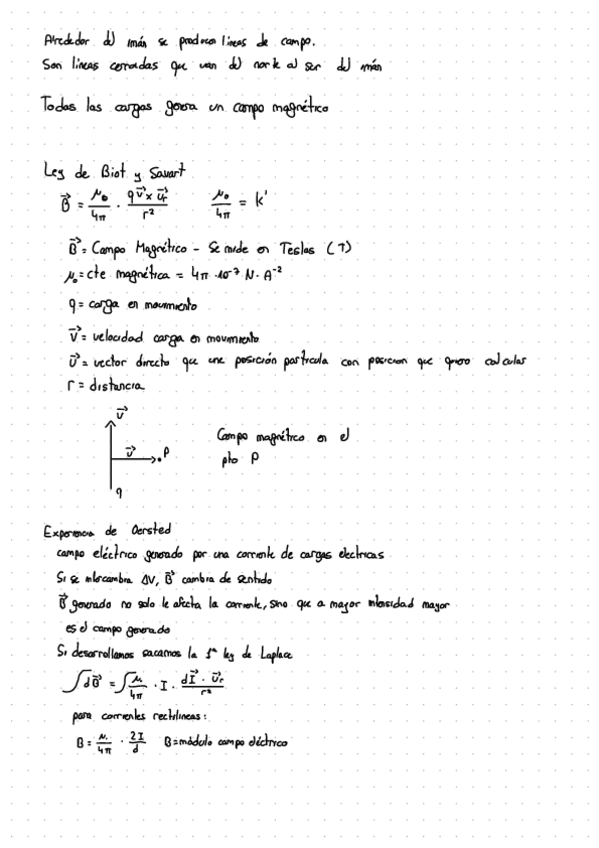 Alrededor del imán se producen líneas de campo.
Son líneas cerradas que van del norte al sur del imán
Todas las cargas genera un campo magnético
Ley de Biot y Savart
B⃗ = μ₀/4π · q v⃗ x u⃗r / r² μ₀/4π = k'
B⃗ = Campo Magnético - Se mide en Teslas (T)
μ₀ = cte magnética = 4π · 10⁻⁷ N · A⁻²
q = carga en movimiento
v⃗ = velocidad carga en movimiento
u⃗ = vector directo que une posición partícula con posicion que quiero calcular
r = distancia
v⃗
u⃗ P
q
Campo magnético en el
pto P
Experiencia de Oersted
campo eléctrico generado por una corriente de cargas electricas
Si se intercambia ΔV, B⃗ cambia de sentido
B⃗ generado no solo le afecta la corriente, sino que a mayor intensidad mayor
es el campo generado
Si desarrollamos sacamos la 1ª ley de Laplace
∫dB⃗ = ∫ μ/4π · I · dI⃗ · u⃗r / r²
para corrientes rectilineas:
B = μ/4π · 2I/d B = módulo campo eléctrico